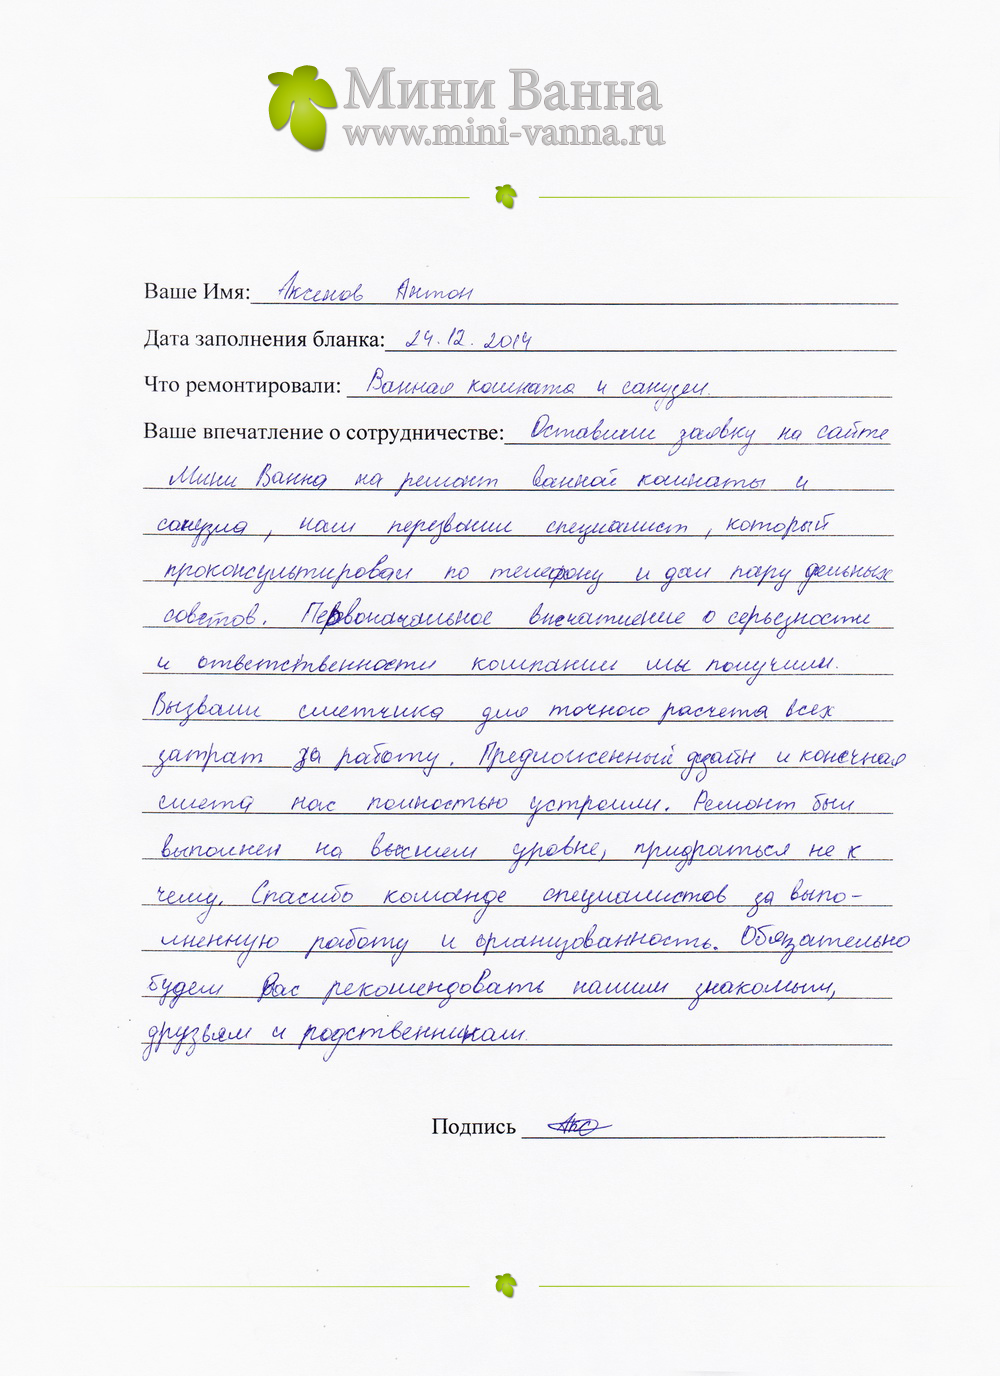 Мини Ванна
www.mini-vanna.ru
Ваше Имя: Аксенов Антон
Дата заполнения бланка: 24.12.2014
Что ремонтировали: Ванная комната и санузел.
Ваше впечатление о сотрудничестве: Оставили заявку на сайте
Мини Ванна на ремонт ванной комнаты и
санузла, нам перезвонил специалист, который
проконсультировал по телефону и дал пару дельных
советов. Первоначальное впечатление о серьезности
и ответственности компании мы получили.
Вызвали сметчика для точного расчета всех
затрат за работу. Предложенный дизайн и конечная
смета нас полностью устроили. Ремонт был
выполнен на высшем уровне, придраться не к
чему. Спасибо команде специалистов за выпо-
лненную работу и организованность. Обязательно
будем Вас рекомендовать нашим знакомым,
друзьям и родственникам.
Подпись